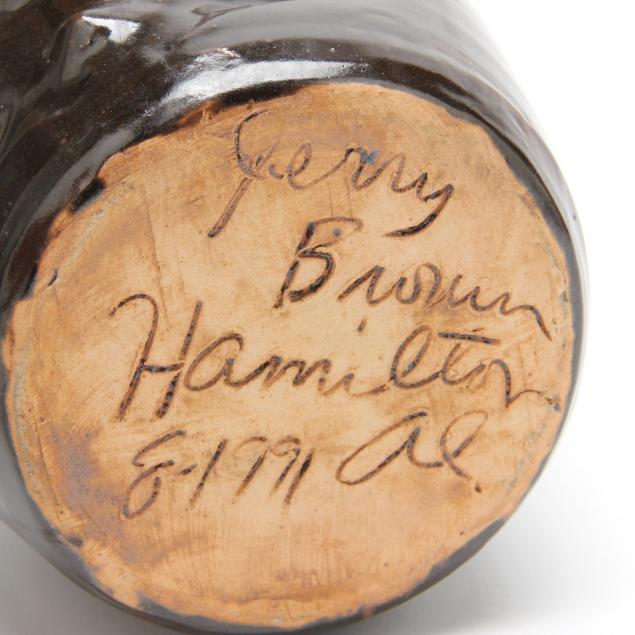 Jerry
Brown
Hamilton
8-1991 Al